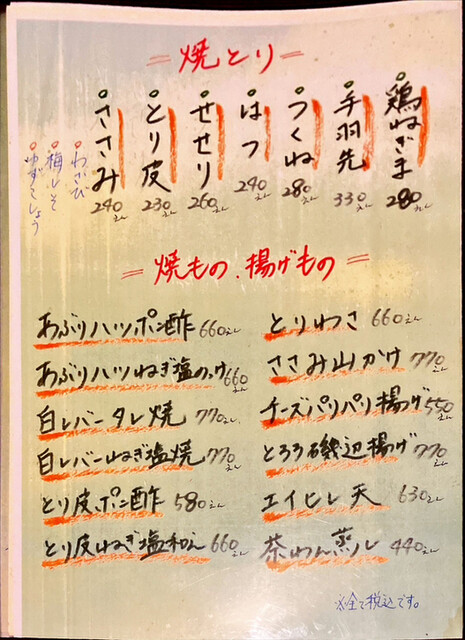 焼とり
鶏ねぎま 280えん
手羽先 330えん
つくね 280えん
はつ 240えん
せせり 260えん
とり皮 230えん
ささみ 240えん
わさび
梅しそ
ゆずこしょう
焼もの、揚げもの
あぶりハツポン酢 660えん
あぶりハツねぎ塩のっけ 660えん
白レバータレ焼 770えん
白レバーねぎ塩焼 770えん
とり皮ポン酢 580えん
とり皮ねぎ塩和え 660えん
とりわさ 660えん
ささみ山かけ 770えん
チーズパリパリ揚げ 550えん
とろろ磯辺揚げ 770えん
エイヒレ天 630えん
茶わん蒸し 440えん
※全て税込です。